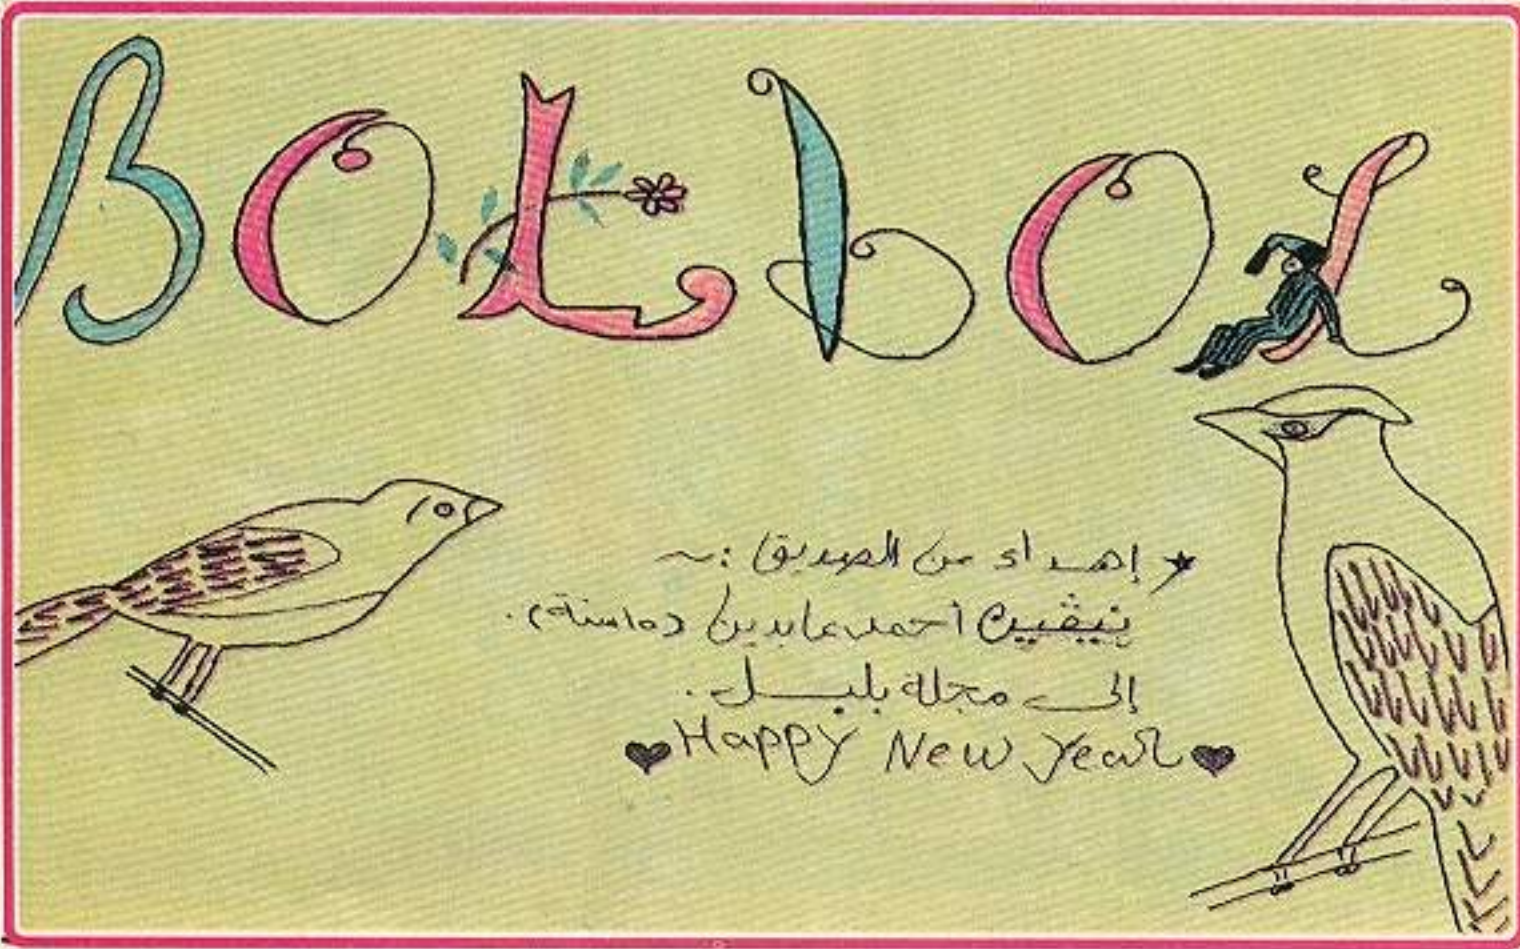 BOLBOL
★ إهداء من الصديق :~
نيڤين أحمد عابدين (١٥ سنة).
إلى مجلة بلبل.
♥Happy New Year♥